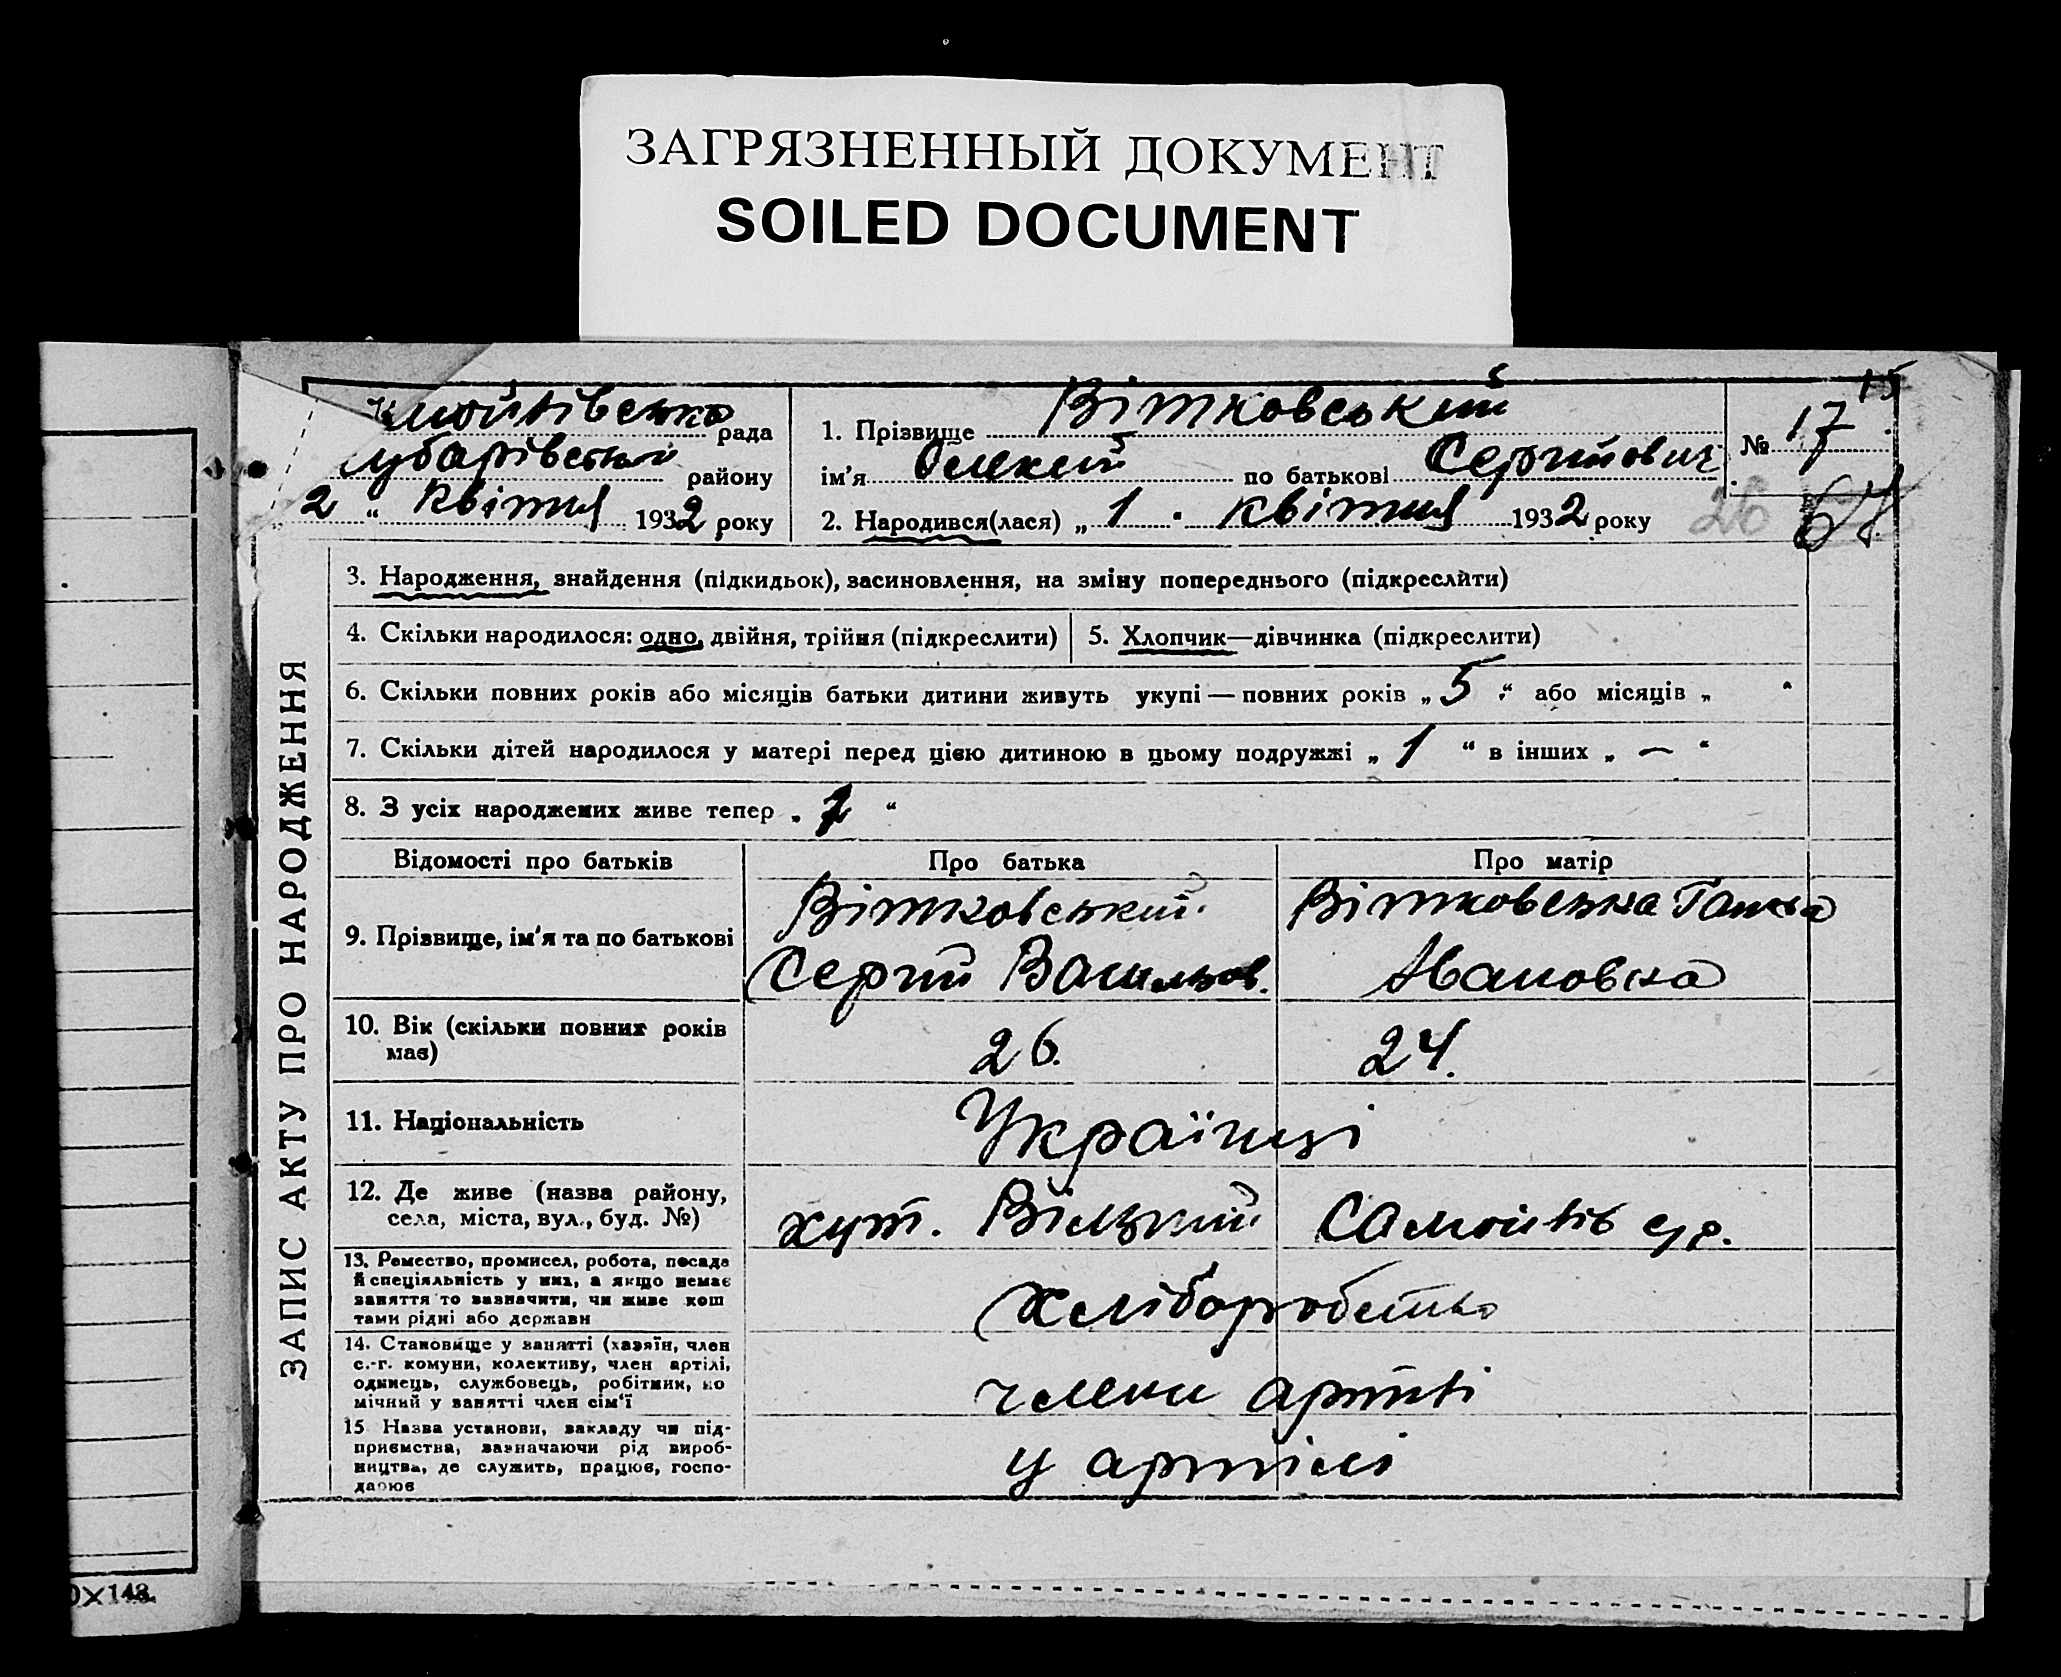 ЗАГРЯЗНЕННЫЙ ДОКУМЕНТ
SOILED DOCUMENT
15
мойлівська рада
убарівський району
„ 2 “ квітня 1932 року
1. Прізвище Вітковський
ім'я Олексій по батькові Сергійович
2. Народився(лася) „ 1 “ квітня 1932 року
№ 17
26 67
ЗАПИС АКТУ ПРО НАРОДЖЕННЯ
3. Народження, знайдення (підкидьок), засиновлення, на зміну попереднього (підкреслити)
4. Скільки народилося: одно, двійня, трійня (підкреслити) 5. Хлопчик—дівчинка (підкреслити)
6. Скільки повних років або місяців батьки дитини живуть укупі — повних років „ 5 “ або місяців „ “
7. Скільки дітей народилося у матері перед цією дитиною в цьому подружжі „ 1 “ в інших „ — “
8. З усіх народжених живе тепер „ “
Відомості про батьків Про батька Про матір
9. Прізвище, ім'я та по батькові
Вітковський
Сергій Васильов.
Вітковська Ганна
Івановна
10. Вік (скільки повних років
має)
26. 24.
11. Національність
Українці
12. Де живе (назва району,
села, міста, вул., буд. №)
хут. Вільський
13. Ремество, промисел, робота, посада
й спеціяльність у них, а якщо немає
заняття то зазначити, чи живе кош
тами рідні або держави
хліборобство
14. Становище у занятті (хазяїн, член
с.-г. комуни, колективу, член артілі,
одинець, службовець, робітник, по
мічний у занятті член сім'ї
члени артілі
15 Назва установи, закладу чи під-
приємства, зазначаючи рід вироб-
ництва, де служить, працює, госпо-
дарює
у артілі
0×148.